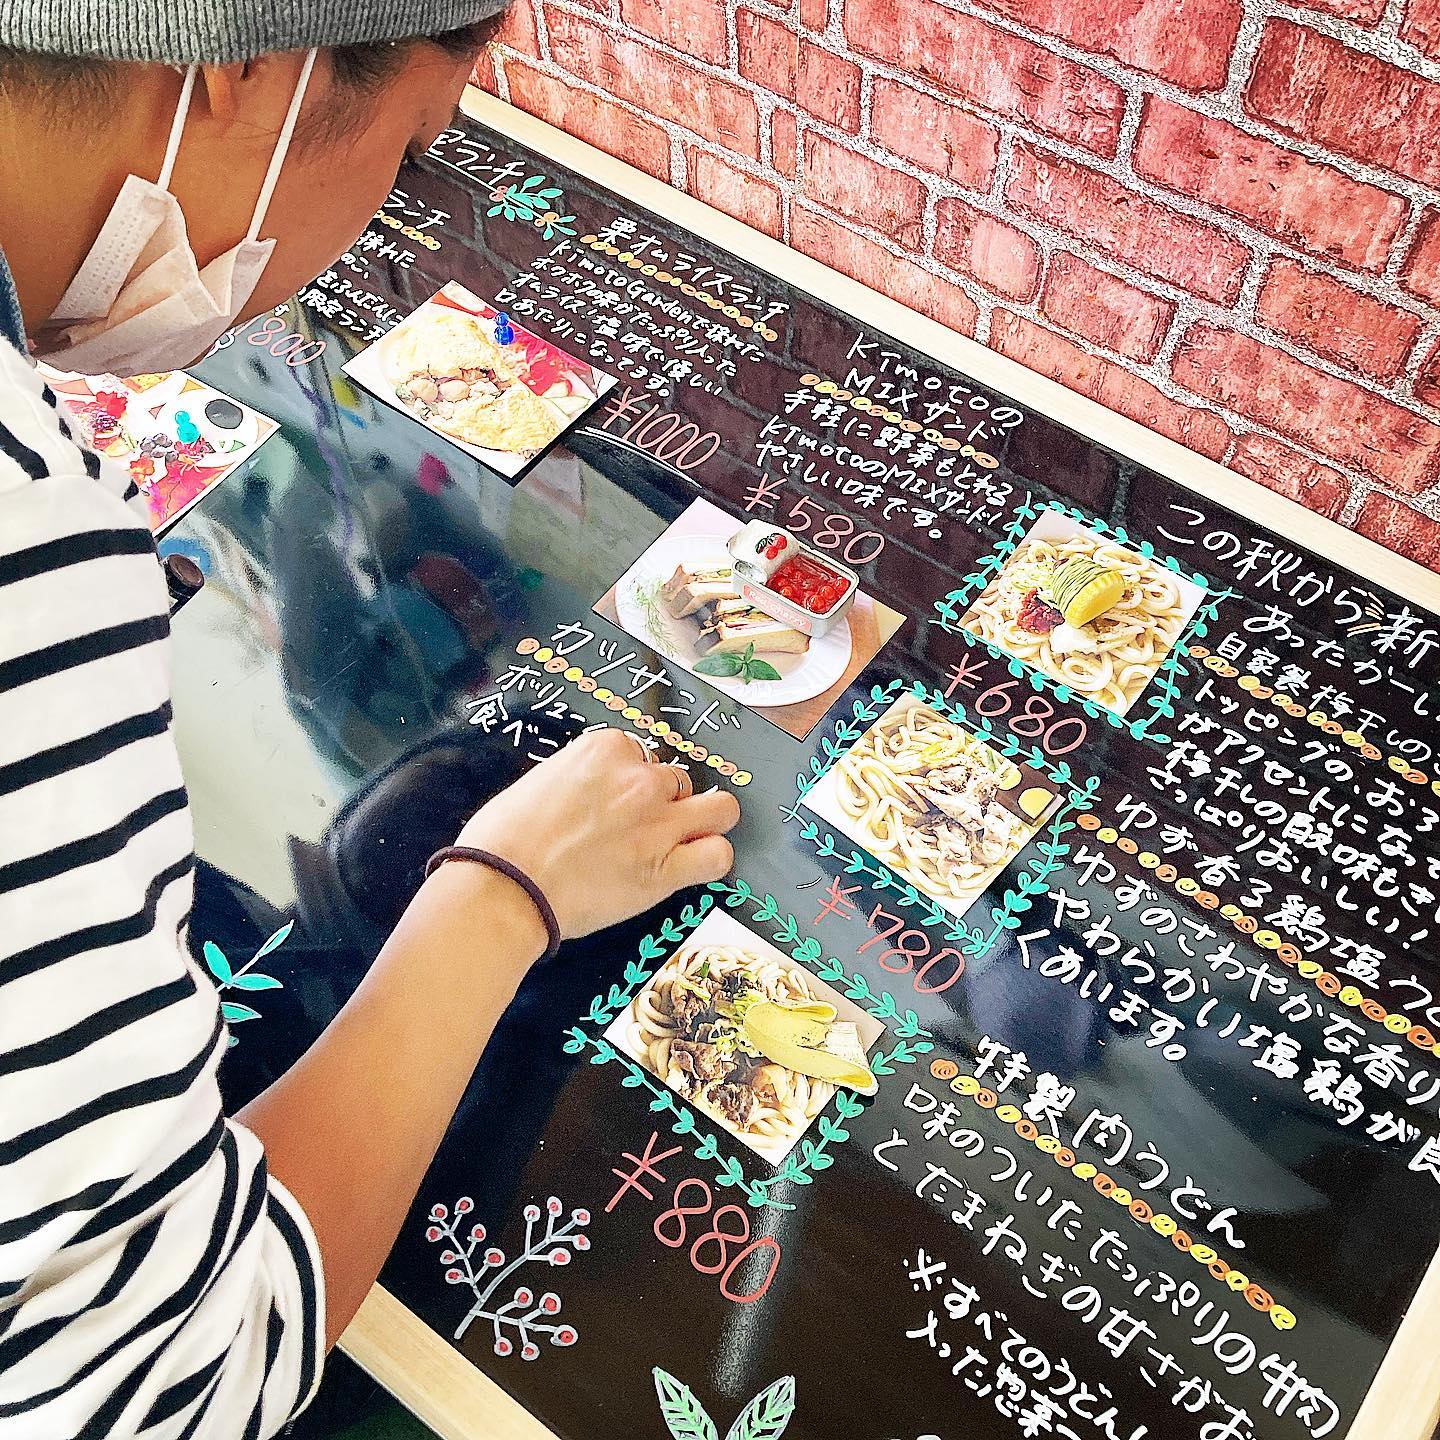 ランチ
ランチ
採れた
限定ランチ
1800
栗オムライスランチ
Kimoto Gardenで採れた
ホクホク味がたっぷり入った
オムライス!塩味で優しい
口あたりになってます。
¥1000
Kimotoの
MIXサンド
手軽に野菜もとれる
KimotoのMIXサンド!
やさしい味です。
¥580
カツサンド
ボリュー
食べご
この秋から新
あったかーい
自家製梅干しの
トッピングの、おろ
がアクセントになって
梅干しの酸味もき
さっぱりおいしい!
¥680
ゆず香る鶏塩うど
ゆずのさわやかな香り
やわらかい塩鶏が良
くあいます。
¥780
特製肉うどん
味のついたたっぷりの牛肉
とたまねぎの甘さがお
¥880
※すべてのうどん
入った惣菜